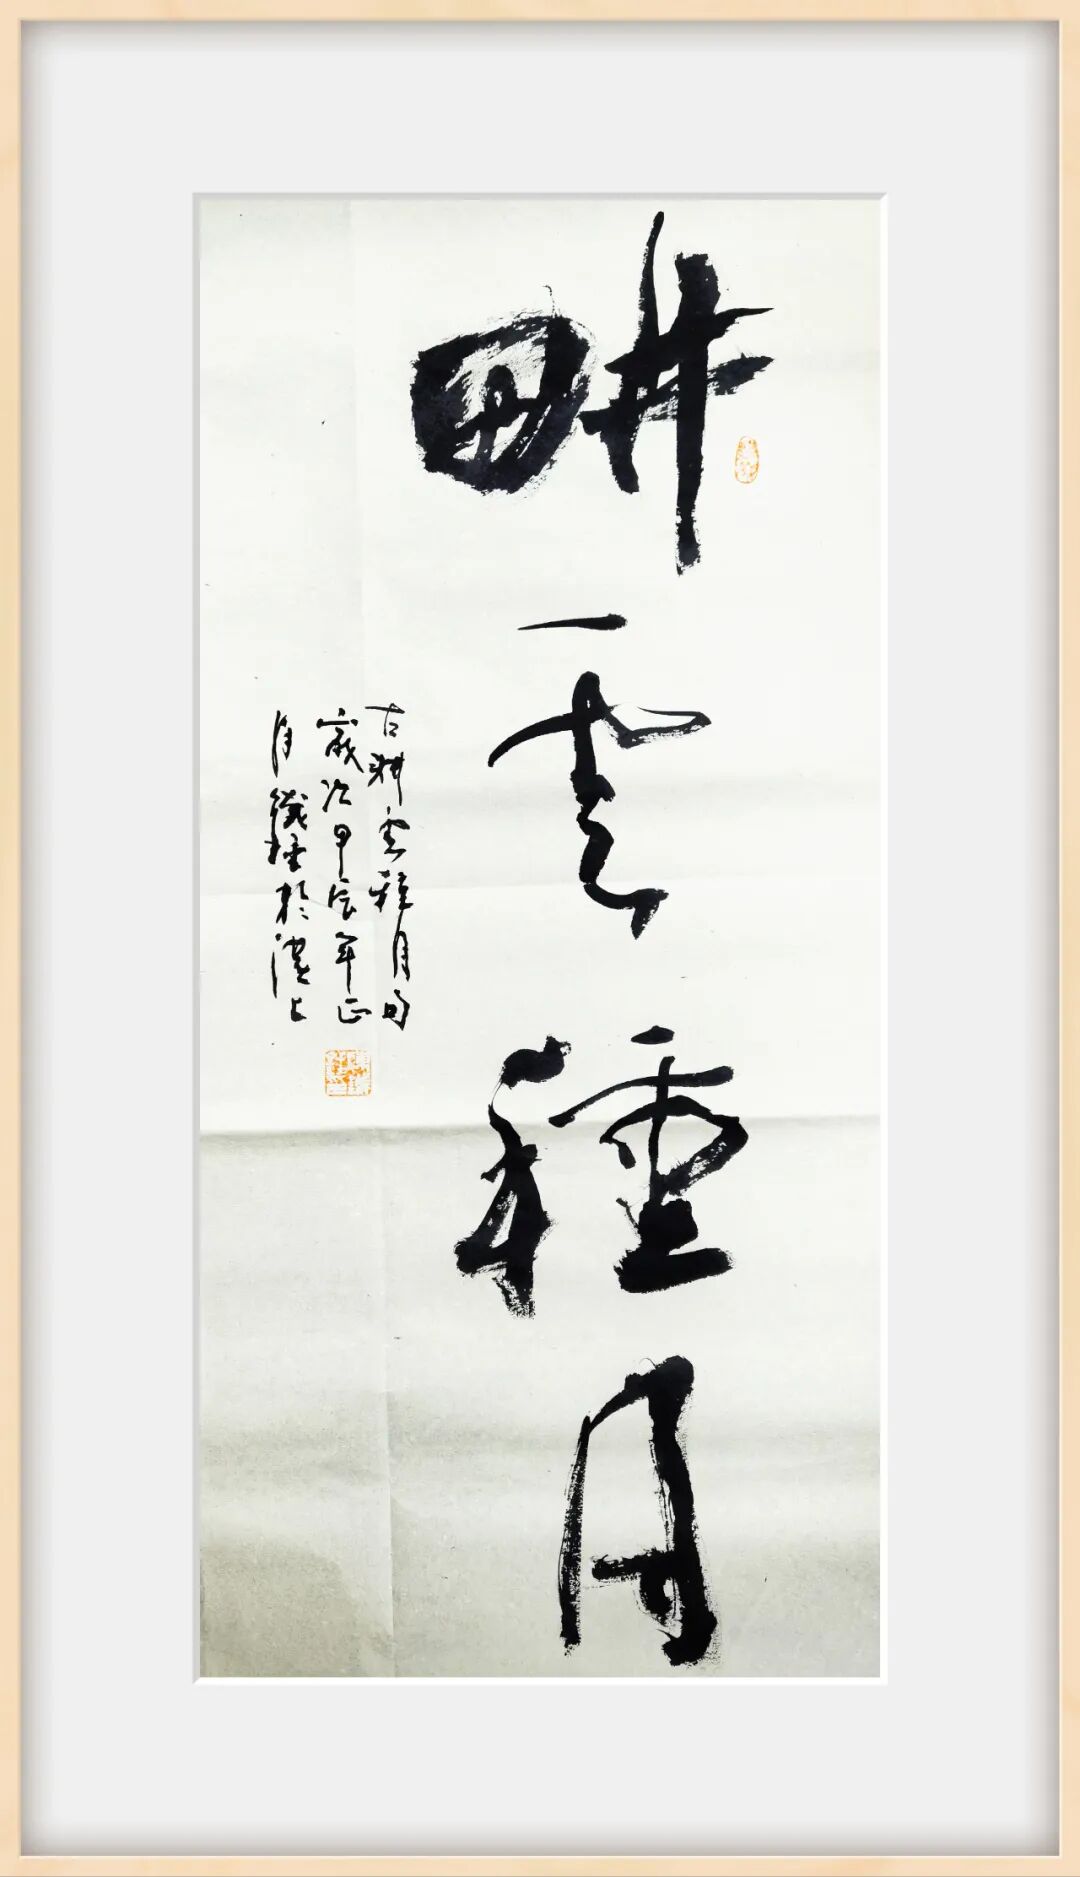 畊雲種月
古耕雲種月句
歲次甲辰年正
月於上